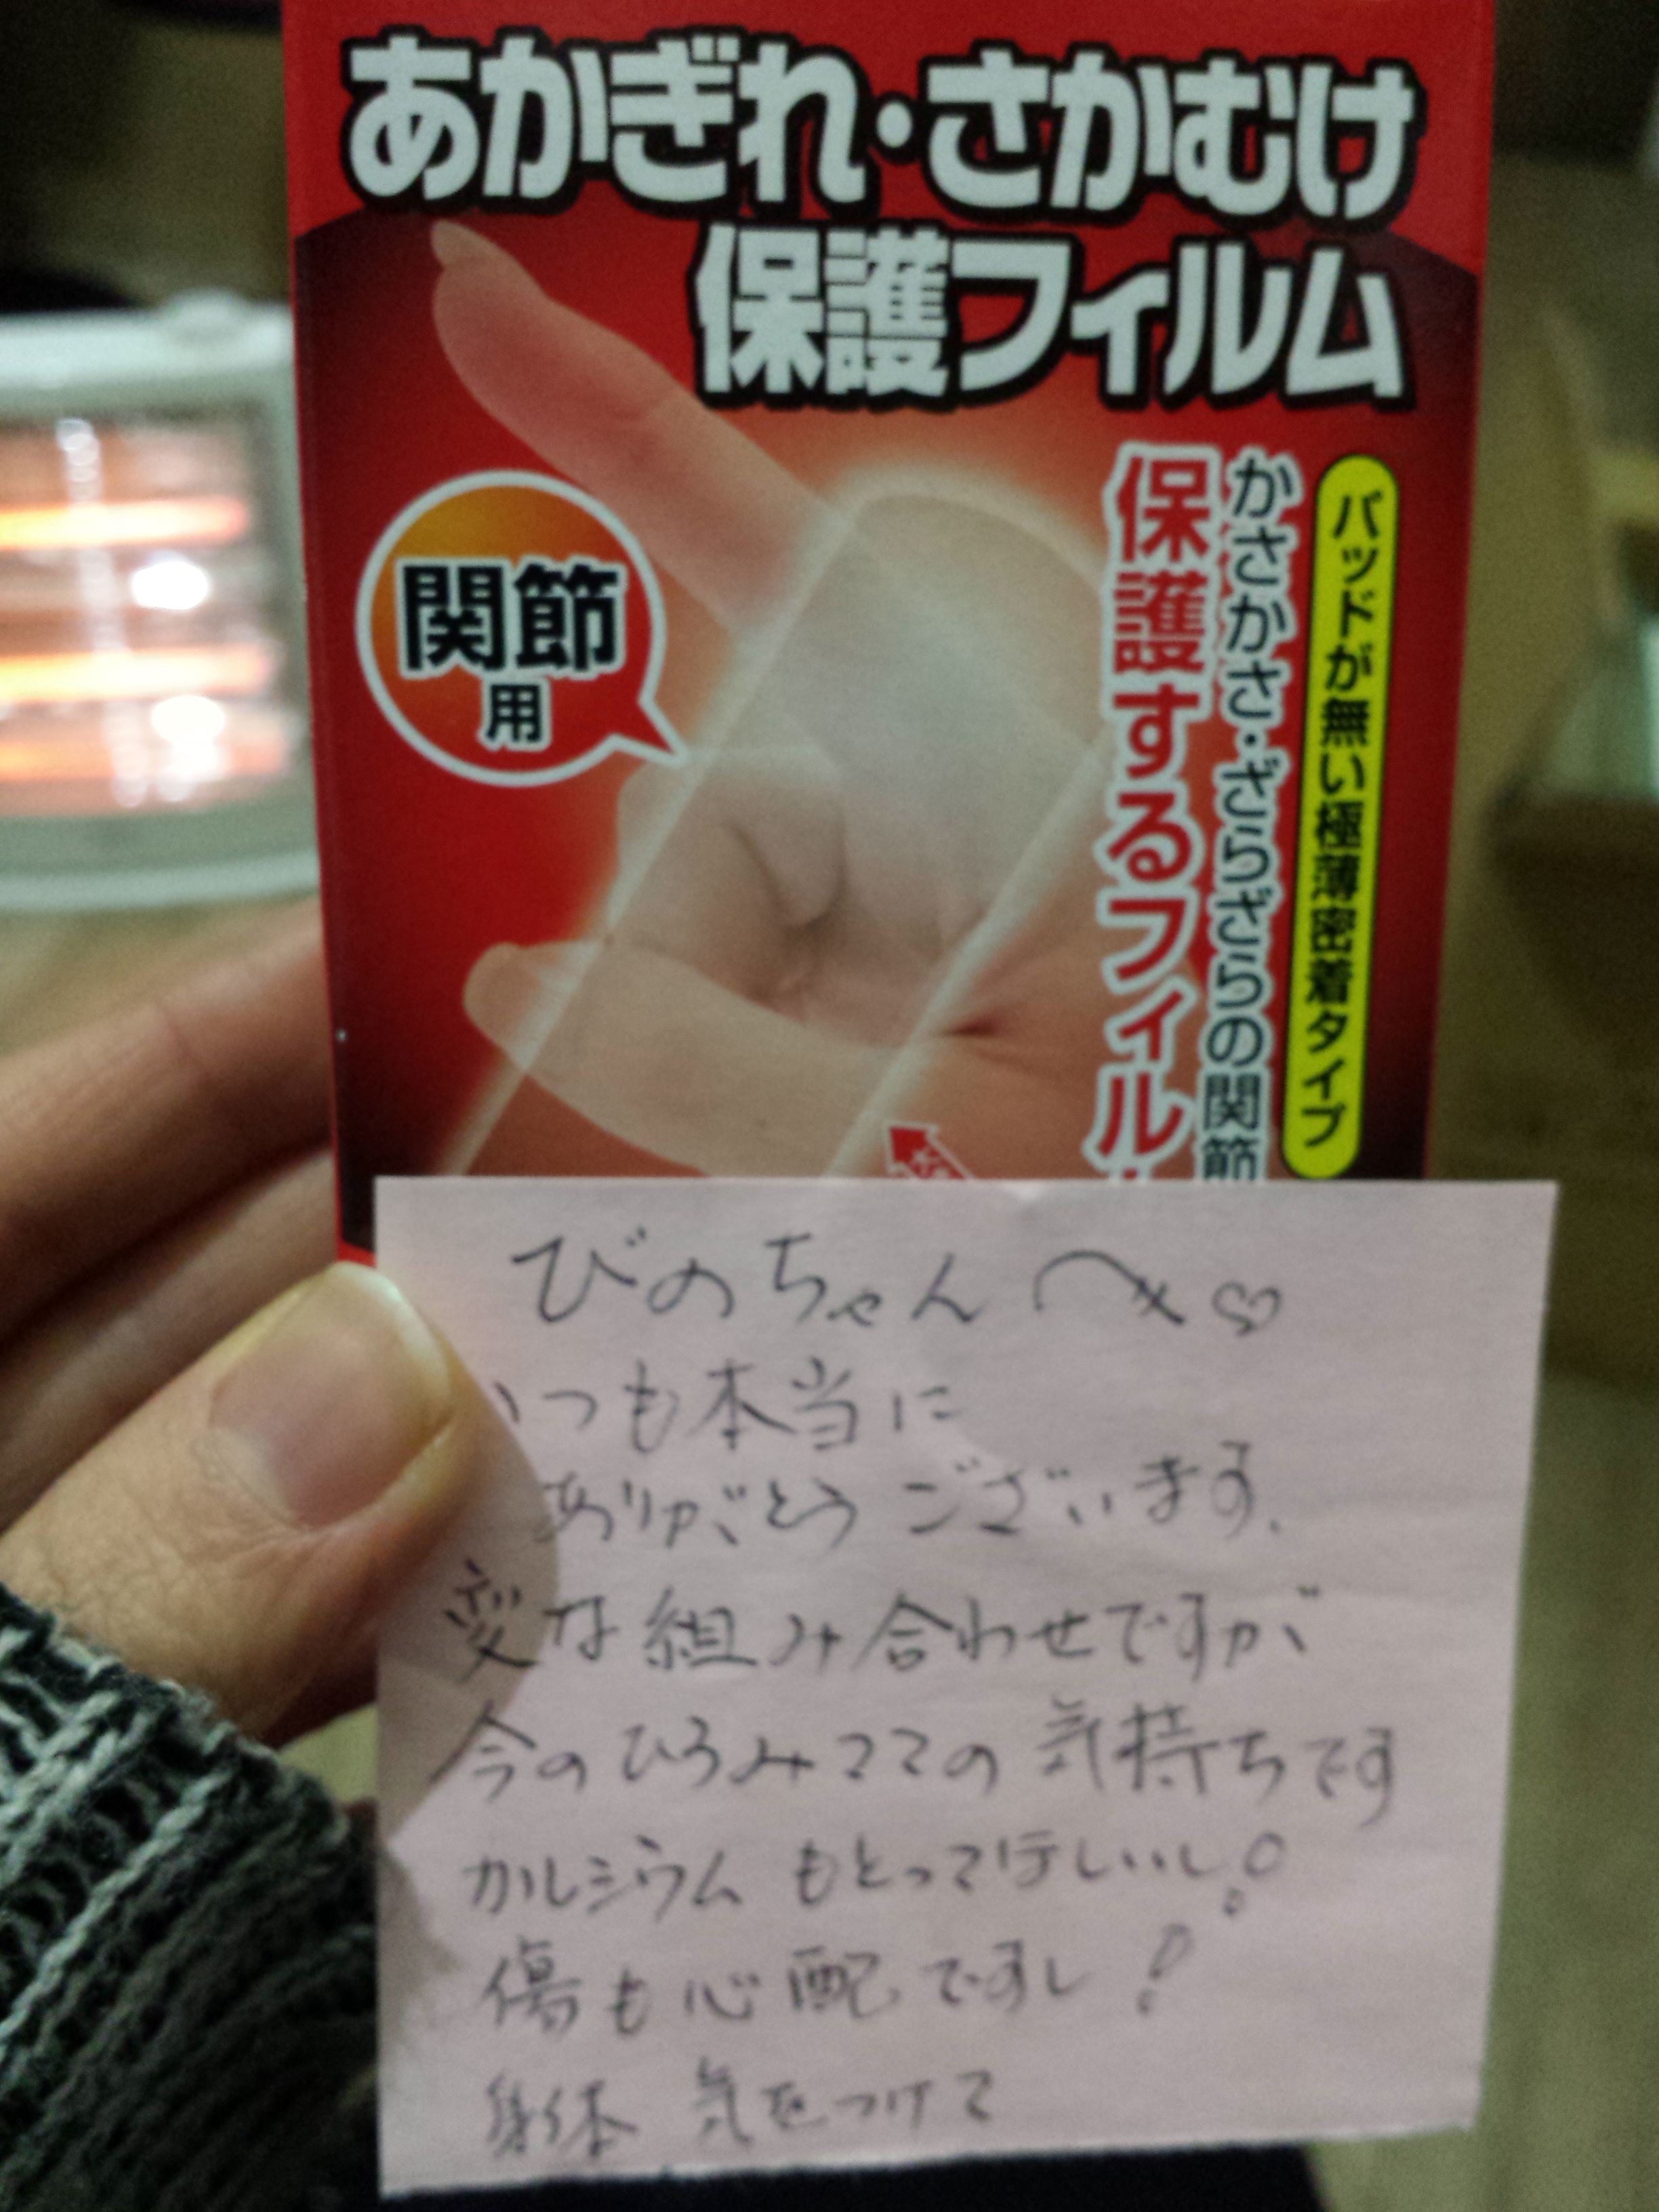 あかぎれ・さかむけ
保護フィルム
関節
用
パッドが無い極薄密着タイプ
かさかさ・ざらざらの関節
保護するフィル
びのちゃんへ♡
いつも本当に
ありがとうございます.
変な組み合わせですが
今のひろみママの気持ちです
カルシウムもとってほしいし!
傷も心配ですし!
身体 気をつけて